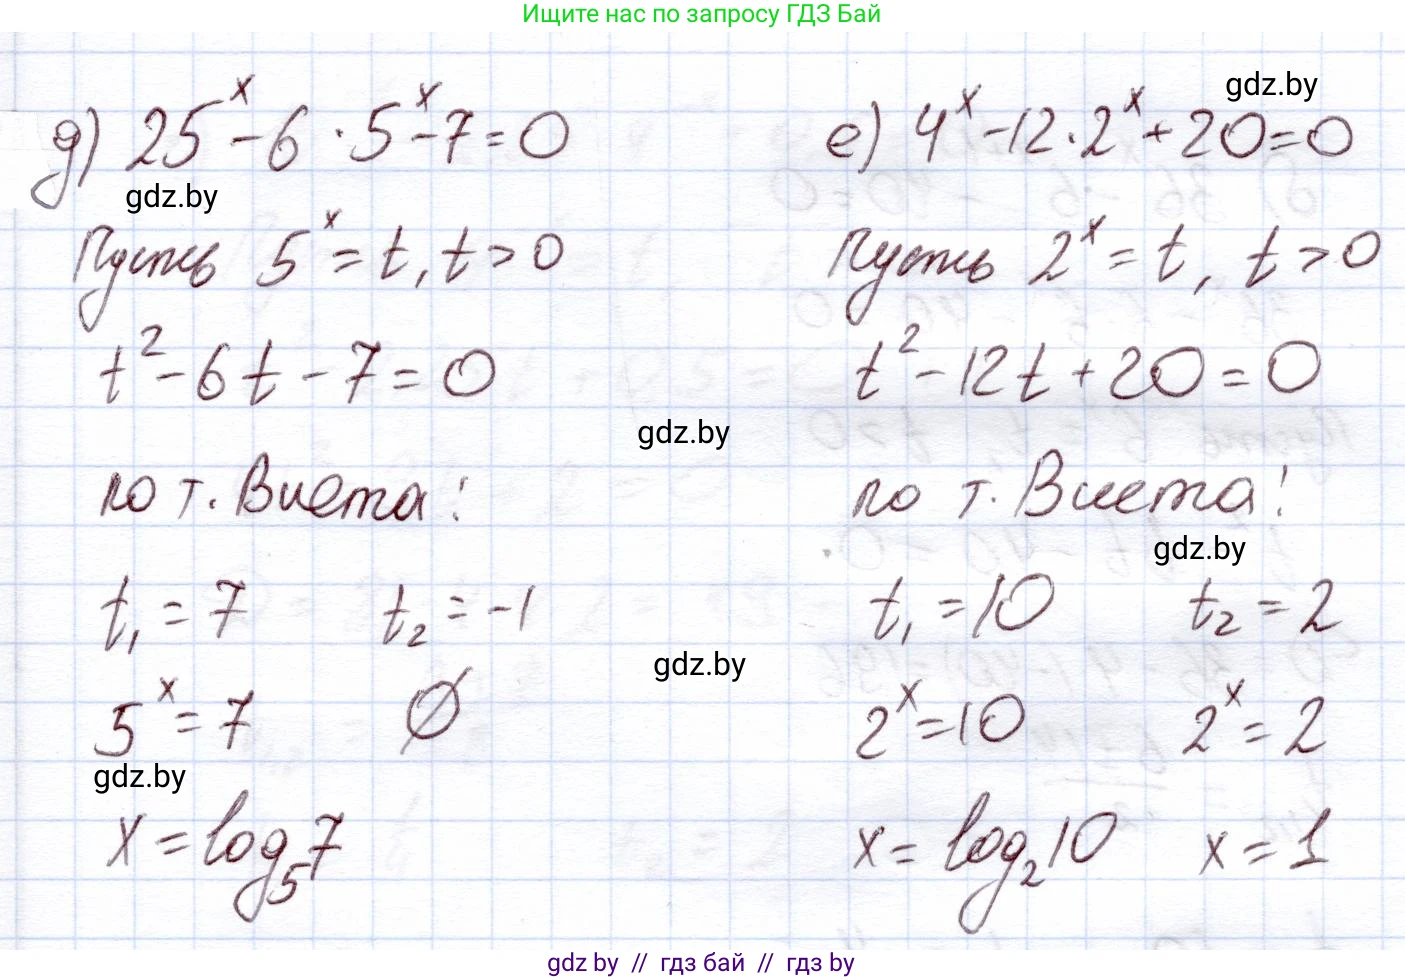 Ищите нас по запросу ГДЗ Бай
д) 25^x - 6 · 5^x - 7 = 0
gdz.by
Пусть 5^x = t, t > 0
t² - 6t - 7 = 0
по т. Виета:
t₁ = 7 t₂ = -1
5^x = 7 ∅
gdz.by
x = log₅7
gdz.by
gdz.by
gdz.by
е) 4^x - 12 · 2^x + 20 = 0
Пусть 2^x = t, t > 0
t² - 12t + 20 = 0
по т. Виета:
gdz.by
t₁ = 10 t₂ = 2
2^x = 10 2^x = 2
x = log₂10 x = 1
gdz by // гдз бай // гдз by